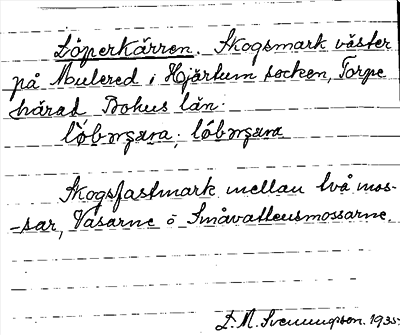 Löperkärren. Skogsmark väster
på Mulered i Hjärtum socken, Torpe
härad Bohus län.
Skogsfastmark mellan två mos-
-sar, Vasarne o Småvattensmossarne.
D. M. Svenungsson. 1935.